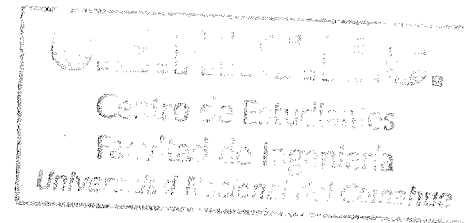 Centro de Estudiantes
Facultad de Ingeniería
Universidad Nacional del Comahue